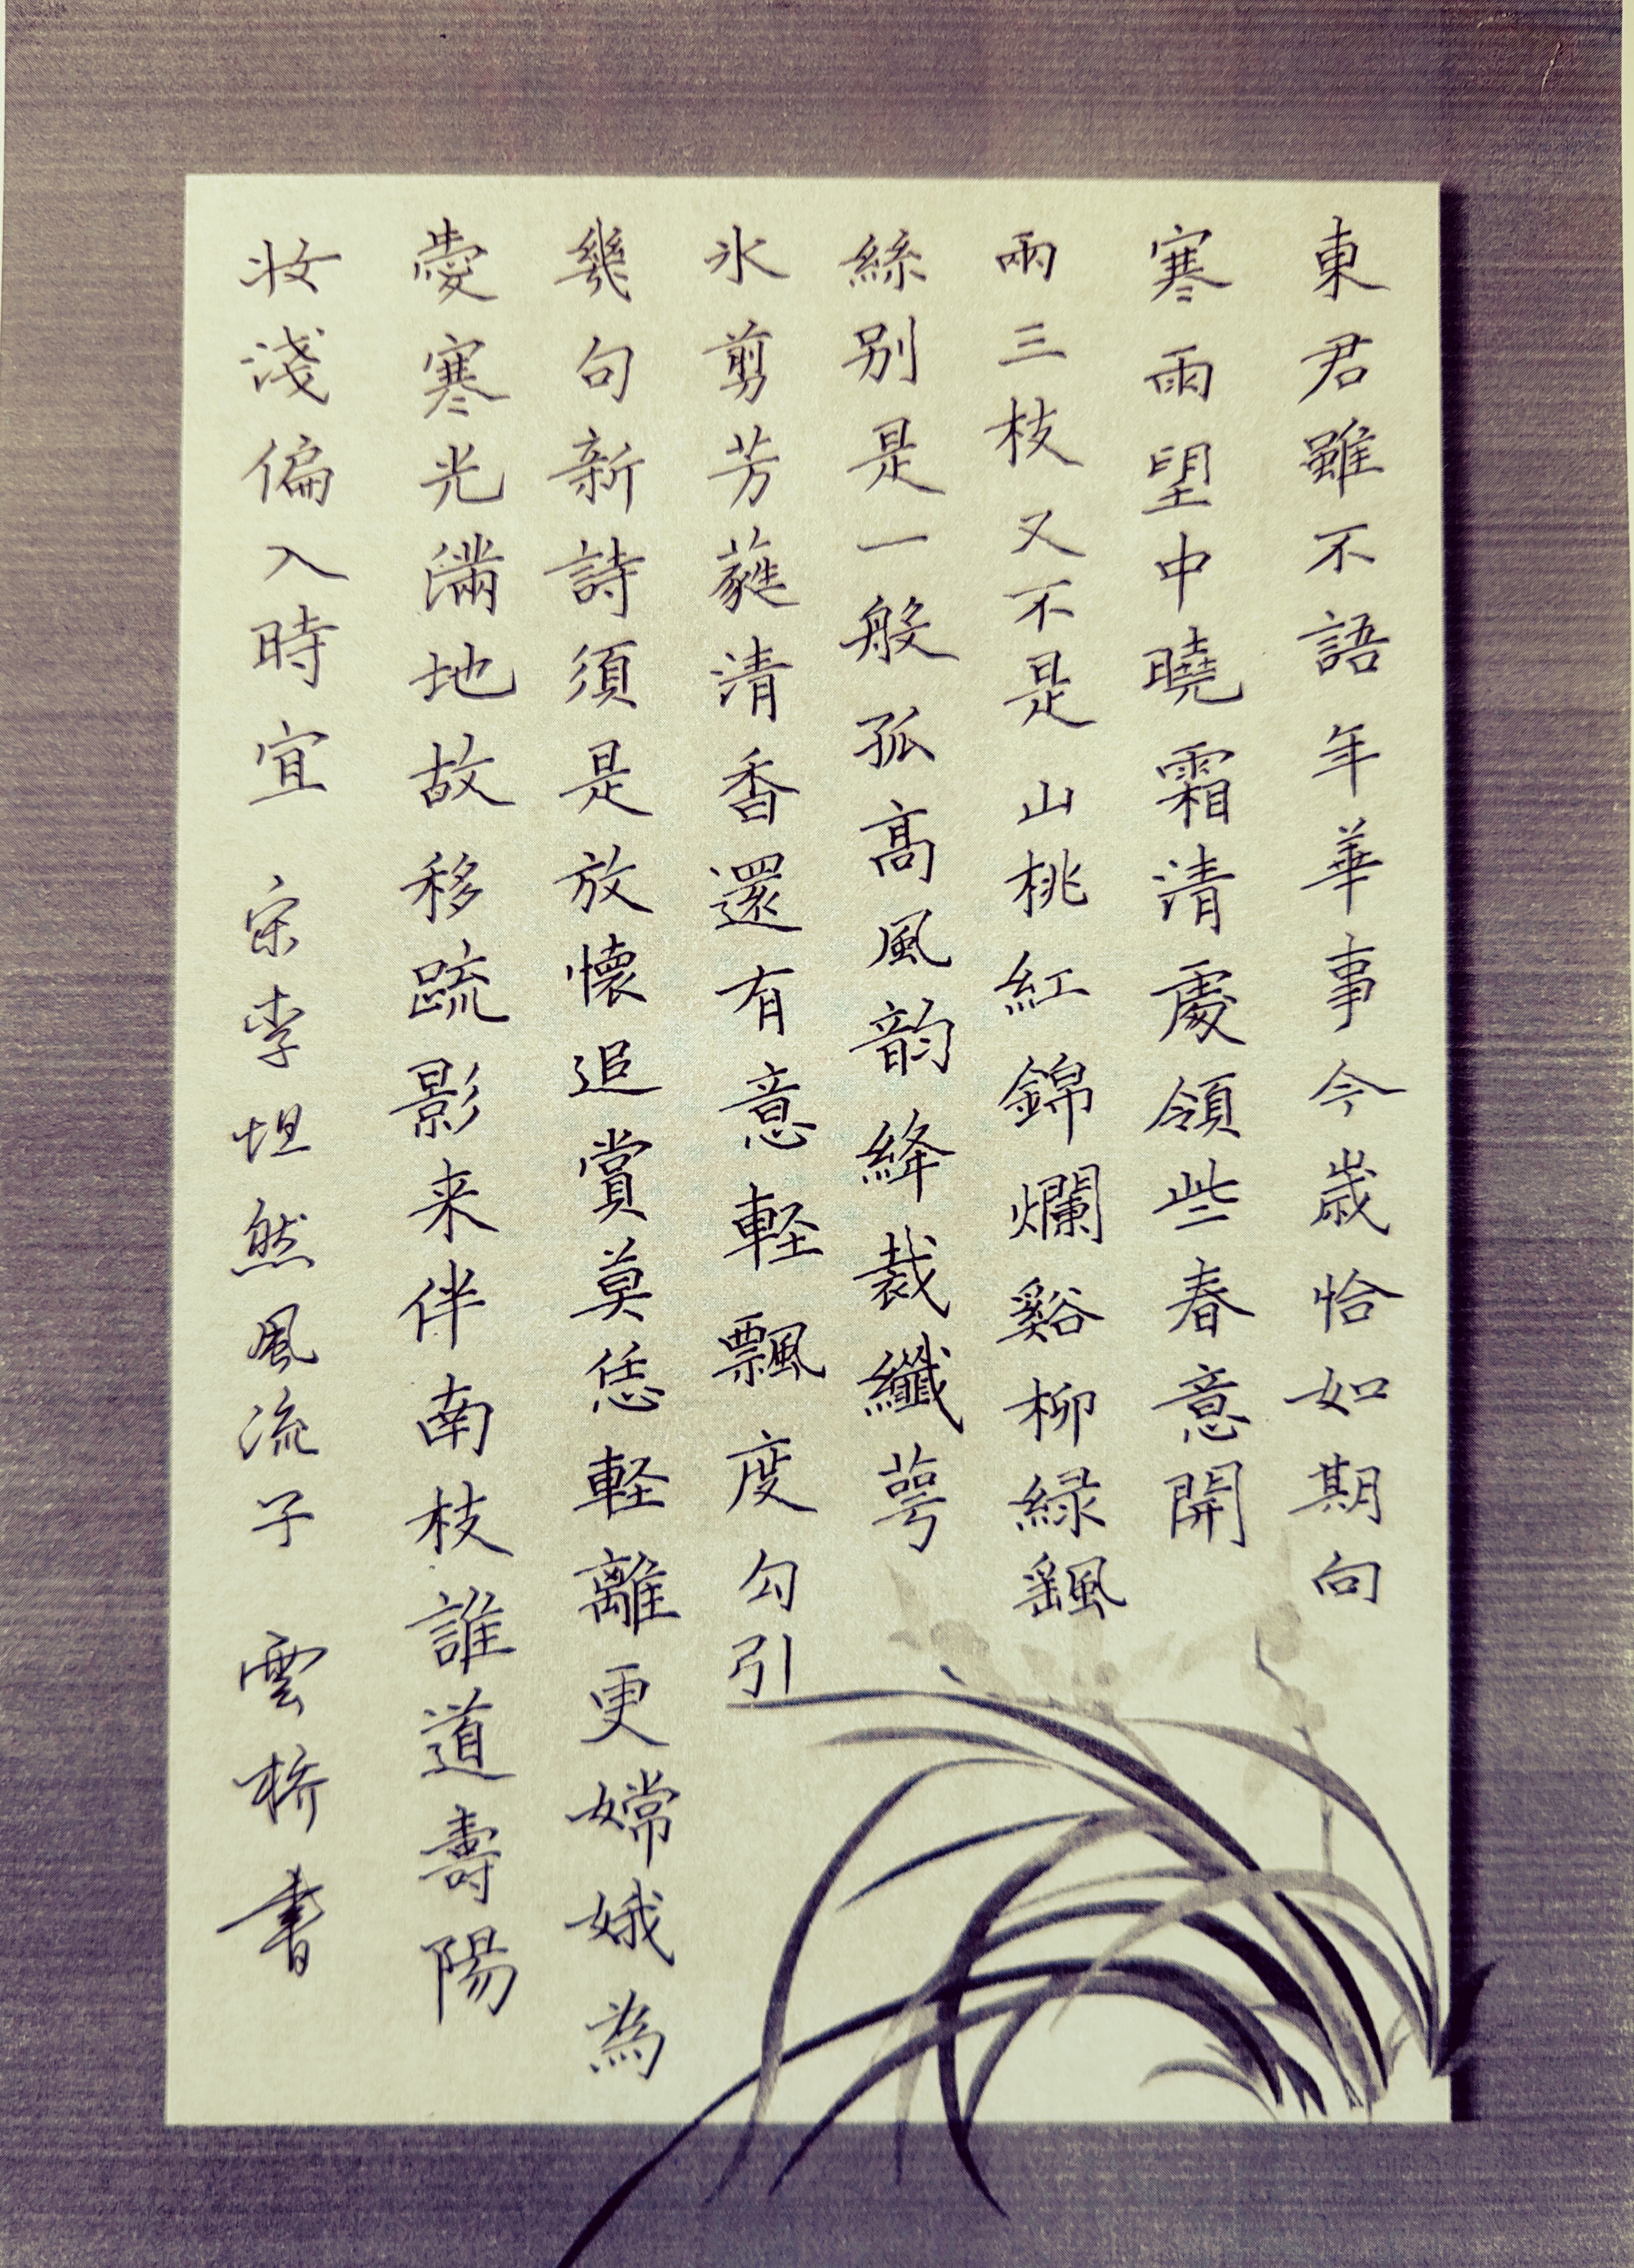 東君雖不語年華事今歲恰如期向
寒雨望中曉霜清處領些春意開
兩三枝又不是山桃紅錦爛谿柳緑飄
絲别是一般孤高風韵絳裁纖萼
氷剪芳蕤清香還有意軽飄度勾引
幾句新詩須是放懷追賞莫恁軽離更嫦娥為
愛寒光滿地故移疏影来伴南枝誰道壽陽
妆淺偏入時宜 宋李坦然風流子 雲橋書